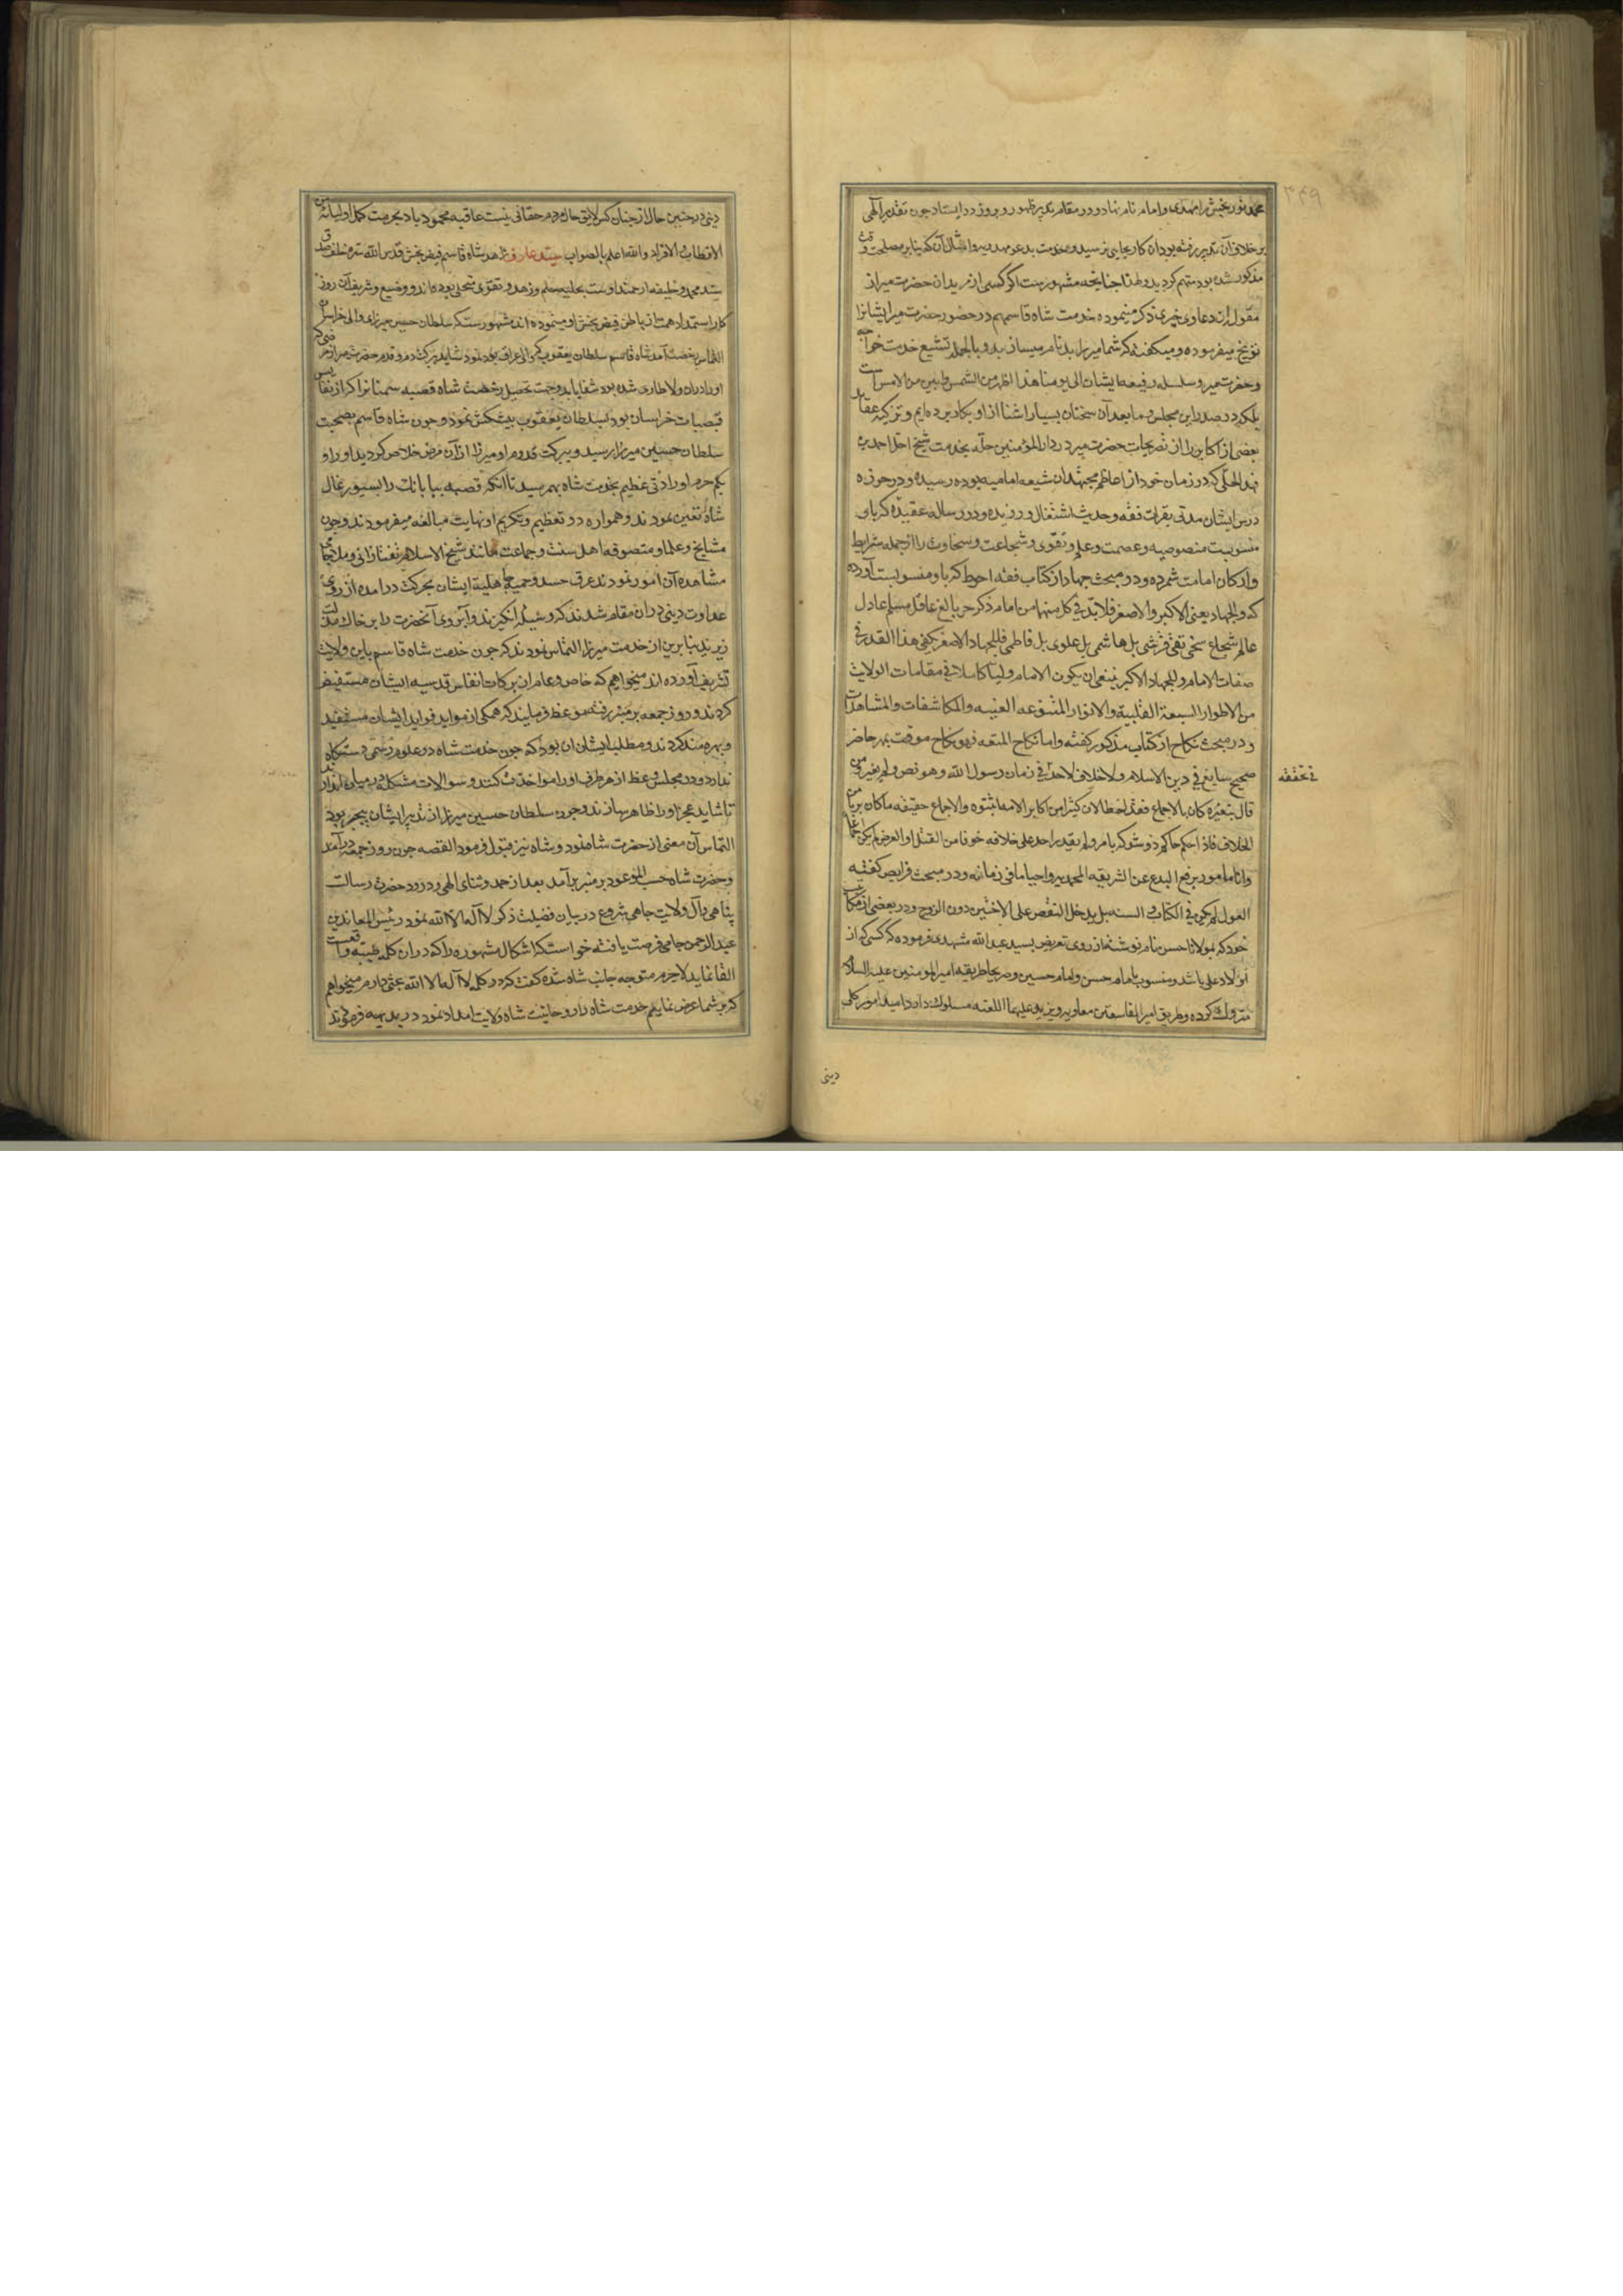 ۳۴۹
محمد نور بخش را مهدی و امام نام نهاد و در مقام تدبیر ظهور و بروز در ایستاد چون تقدیر الهی
بر خلاف آن تدبیر رفته بود آن کار بجایی نرسید و خدمت میر بدعوی مهدویه و امثال آن که بنابر مصلحت وقت
مذکور شده بود متهم کردید و لهذا چنانچه مشهورست اگر کسی از مریدان حضرت میر از
مقوله آن دعاوی چیزی ذکر مینموده خدمت شاه قاسم هم در حضور حضرت میر ایشانرا
توبیخ میفرموده و میکفته که شما میر را بدنام میسازید و بالجمله تشیع خدمت خواجه
و حضرت میر و سلسله رفیعه ایشان الی یومنا هذا اظهر من الشمس و ابین من الامس است
بلکه در صدر این مجلس و ما بعد آن سخنان بسیار اشنا از او بکار برده ایم و تزکیه عقاید
بعضی از اکابر را از تصریحات حضرت میر در دار المؤمنین حله بخدمت شیخ اجل احمد بن
فهد الحلی که در زمان خود از اعاظم مجتهدان شیعه امامیه بوده رسیده و در حوزه
درس ایشان مدتی بقرات فقه و حدیث اشتغال ورزیده و در رساله عقیده که باو
منسوبست منصوصیه و عصمت و علم و تقوی و شجاعت و سخاوت را از جمله شرایط
و ارکان امامت شمرده و در مبحث جهاد از کتاب فقه احوط که باو منسوبست آورده
که و الجهاد یعنی الاکبر و الاصغر فلابد فی کل منهما من امام ذکر حر بالغ عاقل مسلم عادل
عالم شجاع سخی تقی قرشی بل هاشمی بل علوی بل فاطمی فللجهاد الاصغر یکفی هذا القدر فی
صفات الامام و للجهاد الاکبر ینبغی ان یکون الامام ولیا کاملا فی مقامات الولایت
من الاطوار السبعة القلبیة و الانوار المتنوعه الغیبیه و المکاشفات و المشاهدات
و در مبحث نکاح از کتاب مذکور کفته و اما نکاح المتعه فهو نکاح موقت بمهر حاضر
صحیح سایغ فی دین الاسلام و لا خلاف لاحد فی زمان رسول الله و هو نص و لم یغیر من
فی تحققه
قال بتغیره و کان بالاجماع فقد اخطا لان کثیرا من اکابر الامه اثبتوه و الاجماع حقیقه ما کان بریا من
الخلاف فاذا حکم حاکم ذو شوکه بامر و لم یقدر احد علی خلافه خوفا من القتل او العرض لم یکن اجماعا
و انا مامور برفع البدع عن الشریعه المحمدیه و احیاء ما فی زمانه و در مبحث فرایض کفته
العول لم یکن فی الکتاب و السنه بل یدخل النقص علی الاختین دون الزوج و در بعضی از مکاتیب
خود که بمولانا حسن نام نوشته از روی تعریض بسید عبدالله مشهدی فرموده که کسی که از
اولاد علی باشد و منسوب بامام حسن و امام حسین و صریحا طریقه امیر المومنین علیه السلام
متروک کرده و طریق امیر الفاسقین معاویه و یزید علیهما اللعنه مسلوک دارد امید امور کلی
دینی
دینی در چنین حال از چنان کس لایق حال مردم حقانی نیست عاقبه محمود باد بحرمت کمل اولیائه من
الاقطاب و الافراد و الله اعلم بالصواب سید عارف زاهد شاه قاسم فیض بخش قدس الله سره خلف صدق
سید محمد و خلیفه ارجمند اوست بحلیه علم و زهد و تقوی متحلی بوده اند و وضیع و شریف آن روز
کار استمداد همت از باطن فیض بخش او مینموده اند مشهورست که سلطان حسین میرزای والی خراسان
التماس رخصت آمدن شاه قاسم سلطان یعقوب که والی عراق بود نمود شاید ببرکت دم و قدم حضرت میر از مرضی که
او را دران ولا طاری شده بود شفا یابد و جهت تحصیل رخصت شاه قصبه سمنانرا که از نفایس
قصبات خراسان بود بسلطان یعقوب پیشکش نمود و چون شاه قاسم بصحبت
سلطان حسین میرزا رسید و ببرکت قدوم او میرزا از آن مرض خلاص کردید او را و
یکم حرم او را ارادتی عظیم بخدمت شاه بهم رسید تا آنکه قصبه بیابانک را بسیورغال
شاه تعین نمودند و همواره در تعظیم و تکریم او نهایت مبالغه میفرمودند و چون
مشایخ و علما و متصوفه اهل سنت و جماعت مانند شیخ الاسلام تفتازانی و ملا جامی
مشاهده آن امور نمودند عرق حسد و حمیه جاهلیه ایشان بحرکت درامده از روی
عداوت دینی دران مقام شدند که وسیله انکیزند و آبروی آنحضرت را بر خاک مذلت
زیرند بنابرین از خدمت میرزا التماس نمودند که چون خدمت شاه قاسم باین ولایت
تشریف آورده اند میخواهیم که خاص و عام از برکات انفاس قدسیه ایشان مستفیض
کردند و روز جمعه بر منبر رفته موعظه فرمایند که همکی از مواید فواید ایشان مستفید
و بهره مند کردند و مطلب ایشان ان بود که چون خدمت شاه در علوم رسمی دستکاه
ندارد و در مجلس وعظ از هر طرف او را مواخذت کنند و سوالات مشکله در میان اندازند
تا شاید عجز او را ظاهر سازند و چون سلطان حسین میرزا از تدبیر ایشان بیخبر بود
التماس آن معنی از حضرت شاه نمود و شاه نیز قبول فرمود القصه چون روز جمعه درآمد
و حضرت شاه حسب الموعود بر منبر برآمد بعد از حمد و ثنای الهی و درود حضرت رسالت
پناهی و آل ولایت جاهی شروع در بیان فضیلت ذکر لا اله الا الله نمود رئیس المعاندین
عبدالرحمن جامی فرصت یافته خواست که اشکال مشهوره را که دران کلمه طیبه واقعست
القا نماید لاجرم متوجه جانب شاه شده کفت که در کلمه لا آله الا الله بحثی دارم میخواهم
که بر شما عرض نمایم خدمت شاه را روحانیت شاه ولایت امداد نمود در بدیهه فرمودند